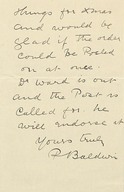 things for Xmas
and would be
glad if the order
could be Posted
on at once.
Dr Ward is out
and the Post is
called for. he
will endorse it
Yours truly
Baldwin